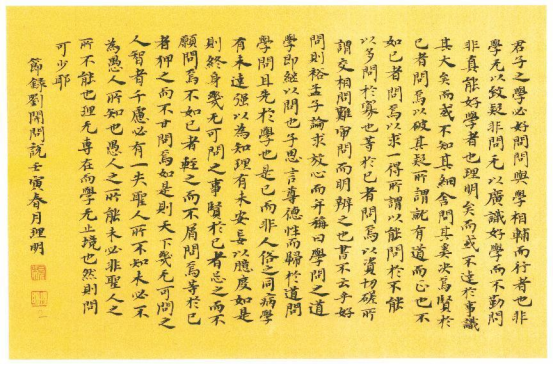 君子之學必好問問與學相輔而行者也非
學无以致疑非問无以廣識好學而不勤問
非真能好學者也理明矣而或不達於事識
其大矣而或不知其細舍問其奚決焉賢於
己者問焉以破其疑所謂就有道而正也不
如己者問焉以求一得所謂以能問於不能
以多問於寡也等於己者問焉以資切磋所
謂交相問難審問而明辨之也書不云乎好
問則裕孟子論求放心而并稱曰學問之道
學即繼以問也子思言尊德性而歸於道問
學問且先於學也是己而非人俗之同病學
有未達強以為知理有未安妄以臆度如是
則終身幾无可問之事賢於己者忌之而不
願問焉不如己者輕之而不屑問焉等於己
者狎之而不甘問焉如是則天下幾无可問之
人智者千慮必有一失聖人所不知未必不
為愚人所知也愚人之所能未必非聖人之
所不能也理无專在而學无止境也然則問
可少耶
節錄劉開問說壬寅春月理明